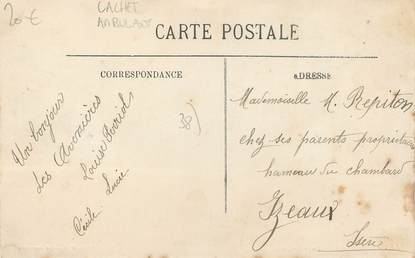 20€
CACHET
AMBULANT
CARTE POSTALE
CORRESPONDANCE
ADRESSE
Un bonjour
Les Avenières
Louise
Cécile Lucie
38)
Mademoiselle M. Repiton
chez ses parents propriétaires
hameau du chambard
Izeaux
Isère